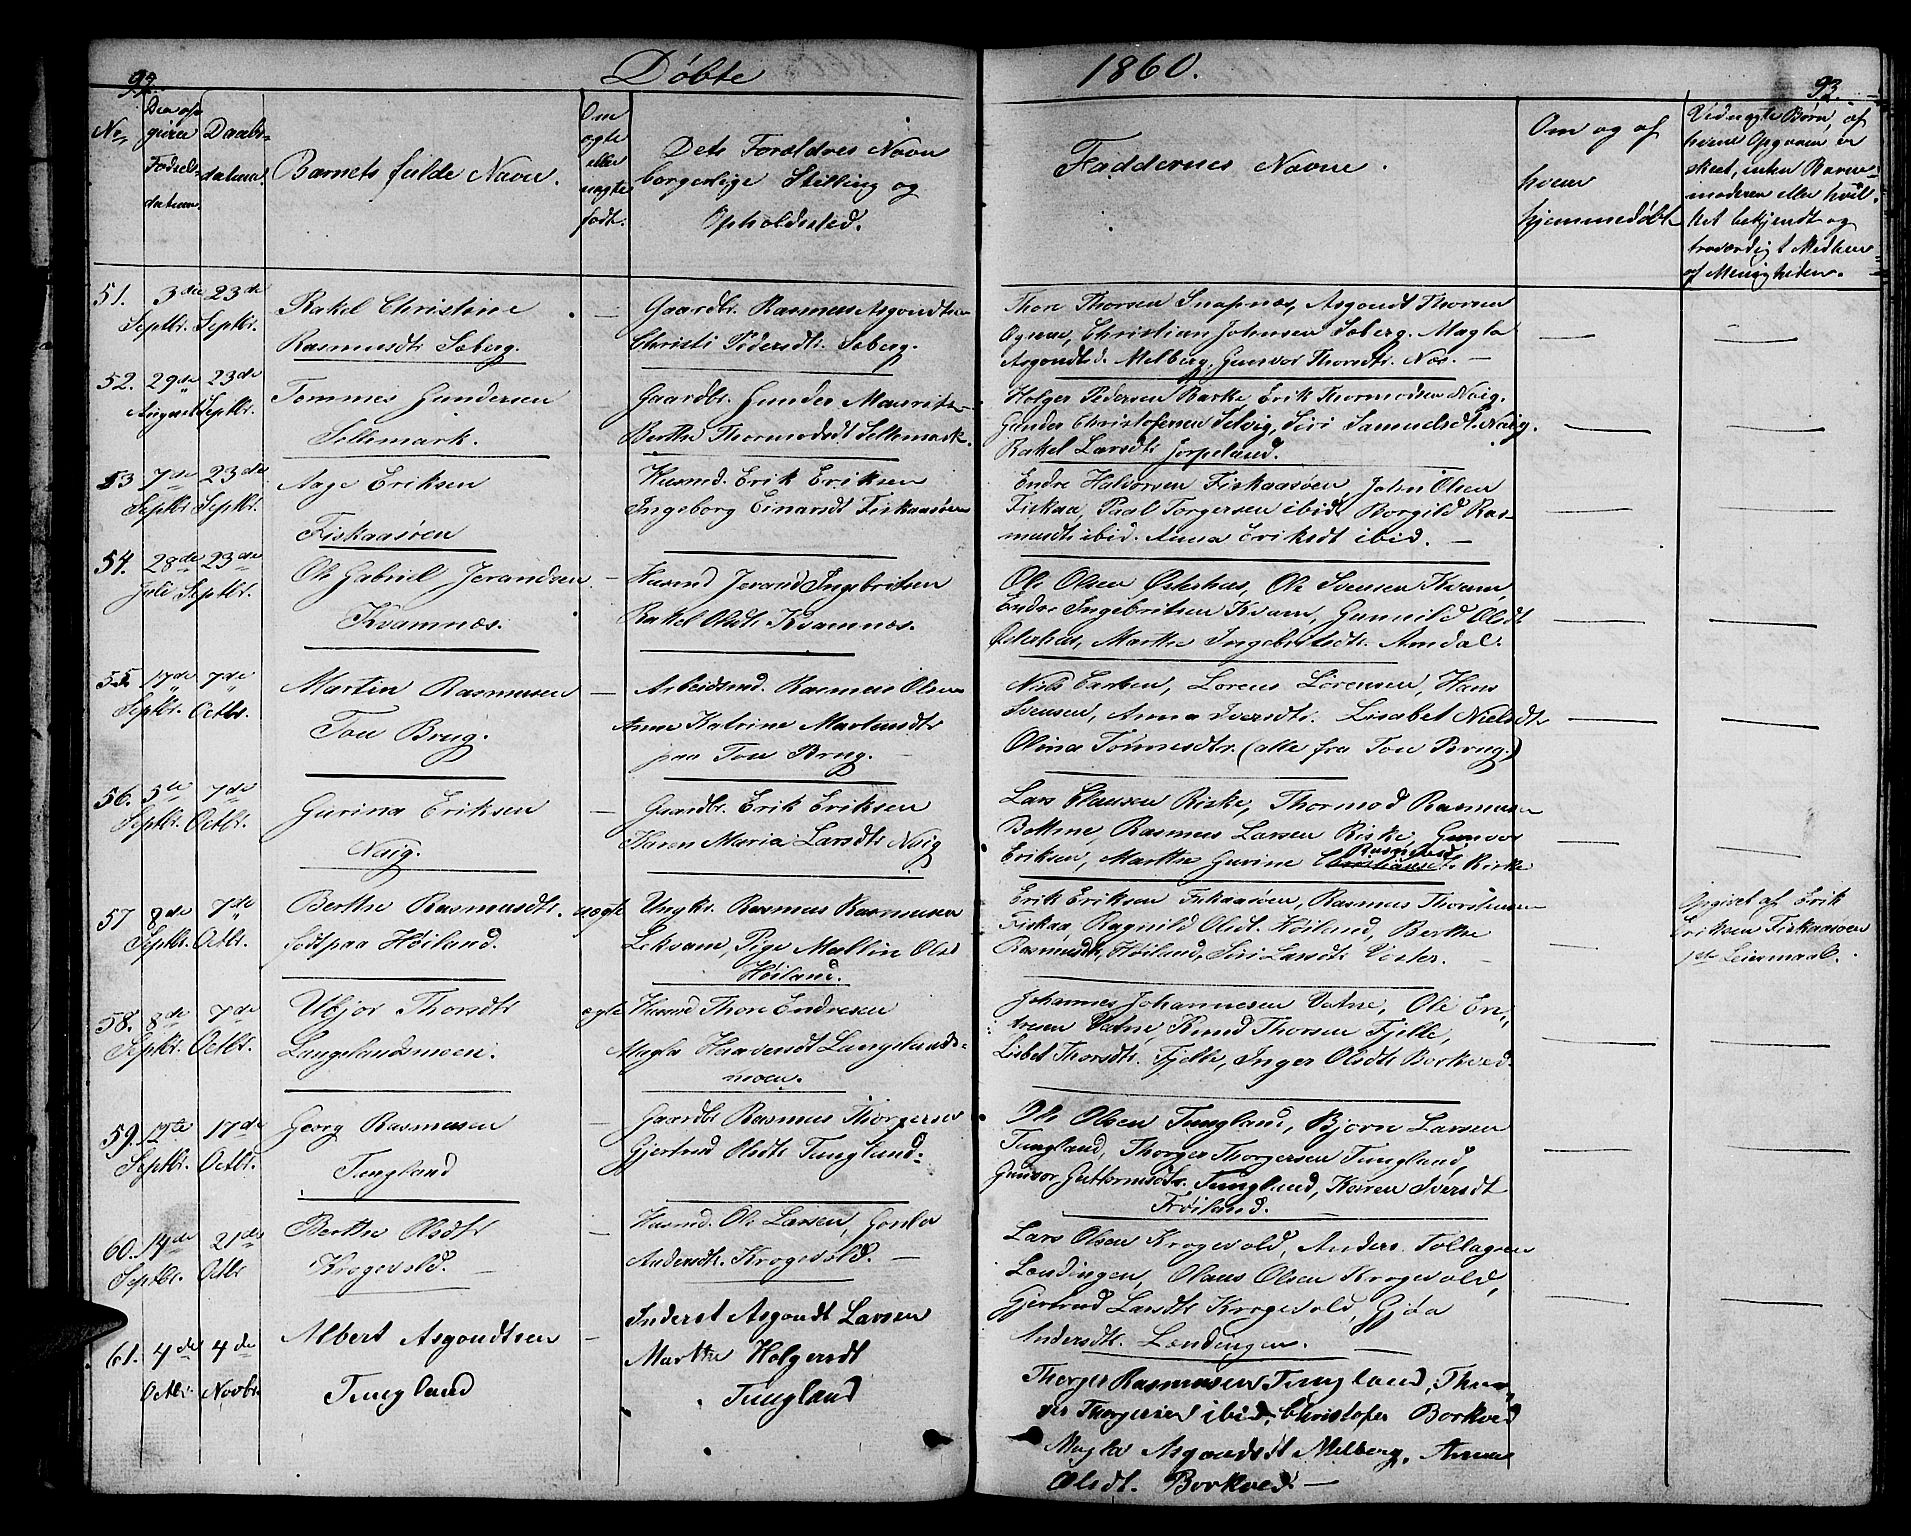 92.
Døbte
1860.
93.
No
Den op-
givne
Fødsels-
datum.
Daabs-
datum.
Barnets fulde Navn.
Om
ægte
eller
uægte
født.
Dets Forældres Navn
borgerlige Stilling og
Opholdssted.
Faddernes Navne.
Om og af
hvem
hjemmedøbt
Ved uægte Børn, af
hvem Opgaven er
skeet, enten Barne-
moderen eller hvil-
ket bekjendt og
troværdigt Medlem
af Menigheden.
51.
3die
Septbr.
23de
Septbr.
Rakel Christine
Rasmusdt. Soberg.
—
Gaardbr. Rasmus Asgoudtsen
Christi Pedersdt. Soberg.
Thore Thorsen Snapnæs, Asgoudt Thorsen
Christian Johnsen Soberg. Magla
Asgoudtsd. Melberg, Gunvor Thorsdtr. Næs. —
52.
29de
August
23de
Septbr.
Tommes Gundersen
Selemark.
Gaardbr. Gunder Mauritz-
Berthe Thormodsdt Selemark.
Holger Pedersen Barke Erik Thormodsen Naig.
Gunder Christofersen Selvig, Siri Samuelsdt. Naig.
Rakel Larsdtr Jørpeland.
53
7de
Septbr.
23de
Septbr.
Aage Eriksen
Fiskaasøen
Husmd. Erik Eriksen
Ingeborg Einarsdt Fiskaasøen
Endre Halvorsen Fiskaasøen John Olsen
Fiskaa, Paal Torgersen ibid. Borgild Ras-
musdtr ibid. Anna Eriksdt ibid. —
54.
28de
Juli
23de
Septbr.
Ole Gabriel Jorandsen
Kvamnæs.
—
Husmd Jorand Ingebritsen
Rakel Olsdtr Kvamnæs.
Ole Olsen Østerhus, Ole Svensen Kvam,
Endre Ingebritsen Kvam, Gunnild Olsdt
Østerhus, Marthe Ingebritsdtr. Amdal.
55
17de
Septbr.
7de
Octbr.
Martin Rasmusen
Tou Brug.
—
Arbeidsmd. Rasmus Olsen
Anne Katrine Martensdtr
paa Tou Brug. —
Niels Larsen, Lorens Sørensen, Hans
Svensen, Anna Iversdtr. Lisabet Nielsdtr
Olina Tønnesdtr. (alle fra Tou Brug.)
56.
5te
Septbr.
7de
Octbr.
Gurina Eriksen
Naig.
—
Gaardbr. Erik Eriksen
Karen Maria Larsdtr Naig
Lars Clausen Riske, Thormod Rasmusen
Bottne, Rasmus Larsen Riske, Gunvor
Eriksen, Marthe Gurine Christiansdt. Riske
57
8de
Septbr.
7de
Octbr.
Berthe Rasmusdt.
født paa Høiland.
uægte
Ungkr. Rasmus Rasmusen
Lekvam, Pige Mallin Olsd
Høiland.
Erik Eriksen Fiskaasøen, Rasmus Thorstensen
Fiskaa, Ragnild Olsdt. Høiland, Berthe
Rasmusdt. Høiland, Siri Larsdt. Voster.
Opgivet af Erik
Eriksen Fiskaasøen
1ste Leiermaal.
58.
8de
Septbr.
7de
Octbr.
Ubjør Thorsdtr
Langelandsmoen.
ægte
Husmd Thore Endresen
Magla Haaversdt Langelands-
moen.
Johannes Johannesen Vatne, Ole En-
dresen Vatne, Knud Thorsen Fjelle,
Lisbet Thorsdtr. Fjelle, Inger Olsdtr Borkved.
59.
12te
Septbr.
17de
Octbr.
Georg Rasmusen
Tungland
—
Gaardbr Rasmus Thorgersen
Gjertrud Olsdtr Tungland.
Ole Olsen Tungland, Bjørn Larsen
Tungland, Thorger Thorgersen Tungland,
Gunvor Guttormsdtr. Tungland, Karen Iversdt
Frøiland.
60.
14de
Septbr.
21de
Octbr
Berthe Olsdtr
Krogevold. —
—
Husmd. Ole Larsen, Gonla
Andersdt. Krogevold. —
Lars Olsen Krogevold, Anders Tollagsen
Londingen, Olaus Olsen Krogevold,
Gjertrud Larsdtr Krogevold, Gjøa
Andersdtr. Londingen.
61.
4de
Octbr.
4de
Novbr.
Albert Asgoudtsen
Tungland
—
Inderst Asgoudt Larsen
Marthe Holgersdt
Tungland
Thorger Rasmusen Tungland, Thor-
ger Thorgersen ibid, Christofer Borkved
Magla Asgoudsdt Melberg. Anna
Olsdt. Borkved. —